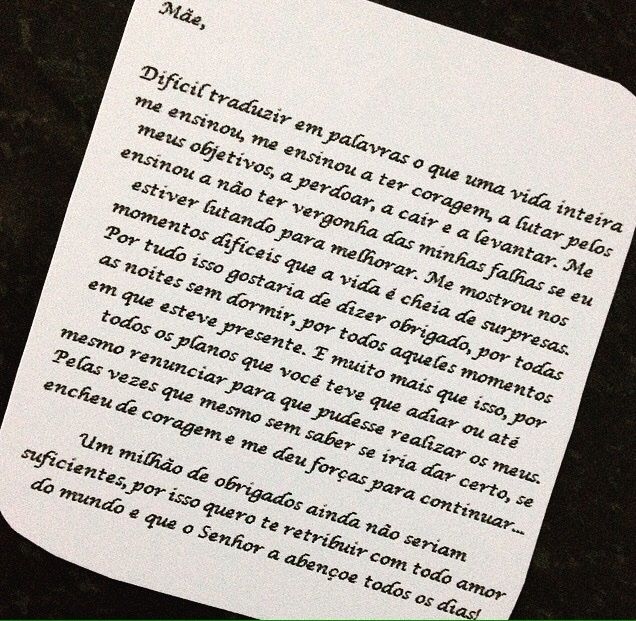 Mãe,
Difícil traduzir em palavras o que uma vida inteira
me ensinou, me ensinou a ter coragem, a lutar pelos
meus objetivos, a perdoar, a cair e a levantar. Me
ensinou a não ter vergonha das minhas falhas se eu
estiver lutando para melhorar. Me mostrou nos
momentos difíceis que a vida é cheia de surpresas.
Por tudo isso gostaria de dizer obrigado, por todas
as noites sem dormir, por todos aqueles momentos
em que esteve presente. E muito mais que isso, por
todos os planos que você teve que adiar ou até
mesmo renunciar para que pudesse realizar os meus.
Pelas vezes que mesmo sem saber se iria dar certo, se
encheu de coragem e me deu forças para continuar...
Um milhão de obrigados ainda não seriam
suficientes, por isso quero te retribuir com todo amor
do mundo e que o Senhor a abençoe todos os dias!